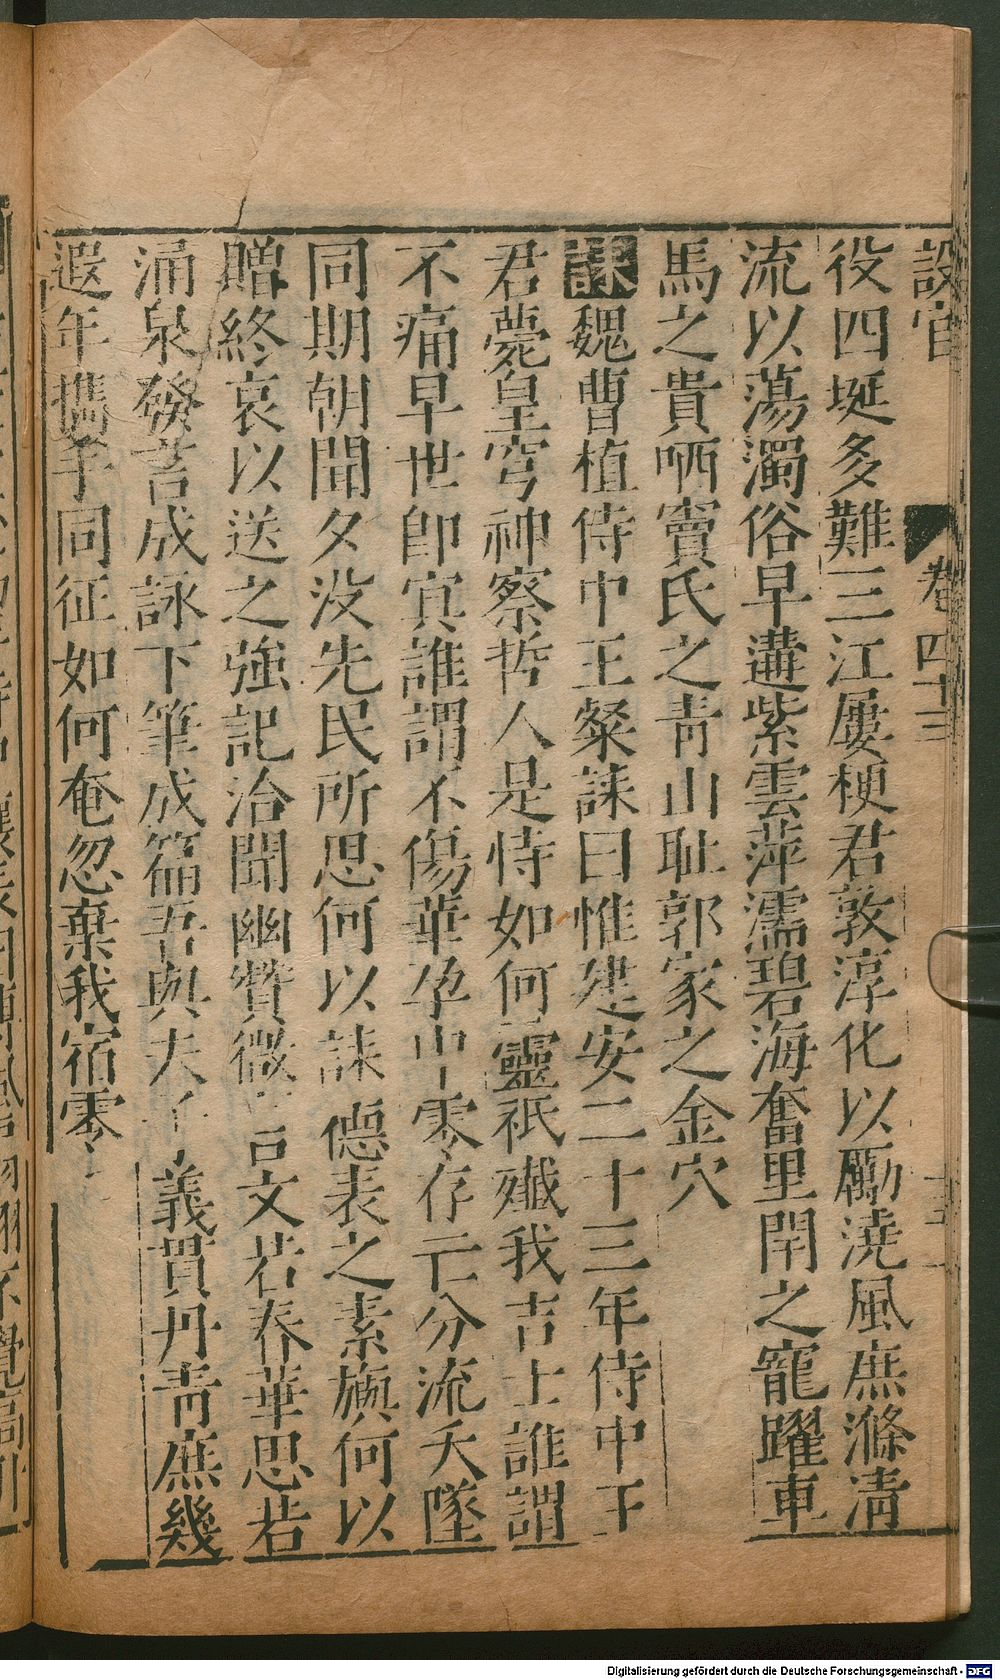 設官
卷四十三
十三
役四埏多難三江屢梗君敦淳化以勵澆風庶滌淸
流以蕩濁俗早遘紫雲萍濡碧海奮里閈之寵躍車
馬之貴哂竇氏之靑山耻郭家之金穴
誄魏曹植侍中王粲誄曰惟建安二十三年侍中王
君薨皇穹神察哲人是恃如何靈祇殲我吉士誰謂
不痛早世卽㝠誰謂不傷華孕中零存亡分流夭墜
同期朝聞夕没先民所思何以誄德表之素旟何以
贈終哀以送之強記洽聞幽贊微言文若春華思若
涌泉發言成詠下筆成篇吾與夫子義貫丹靑庶幾
遐年攜手同征如何奄忽棄我宿零
Digitalisierung gefördert durch die Deutsche Forschungsgemeinschaft - DFG